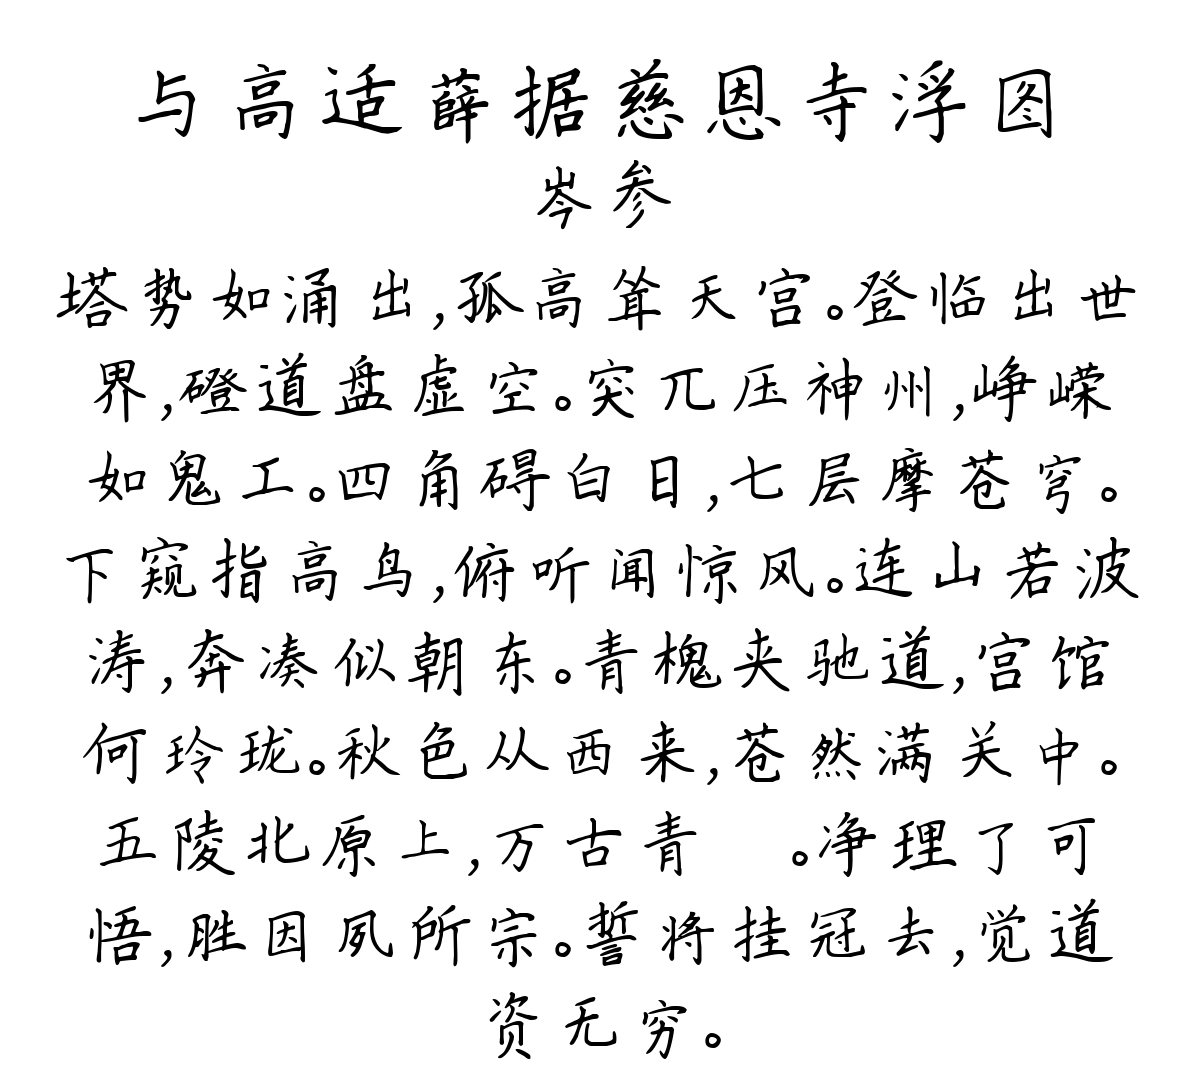 与高适薛据慈恩寺浮图
岑参
塔势如涌出,孤高耸天宫。登临出世
界,磴道盘虚空。突兀压神州,峥嵘
如鬼工。四角碍白日,七层摩苍穹。
下窥指高鸟,俯听闻惊风。连山若波
涛,奔凑似朝东。青槐夹驰道,宫馆
何玲珑。秋色从西来,苍然满关中。
五陵北原上,万古青 。净理了可
悟,胜因夙所宗。誓将挂冠去,觉道
资无穷。